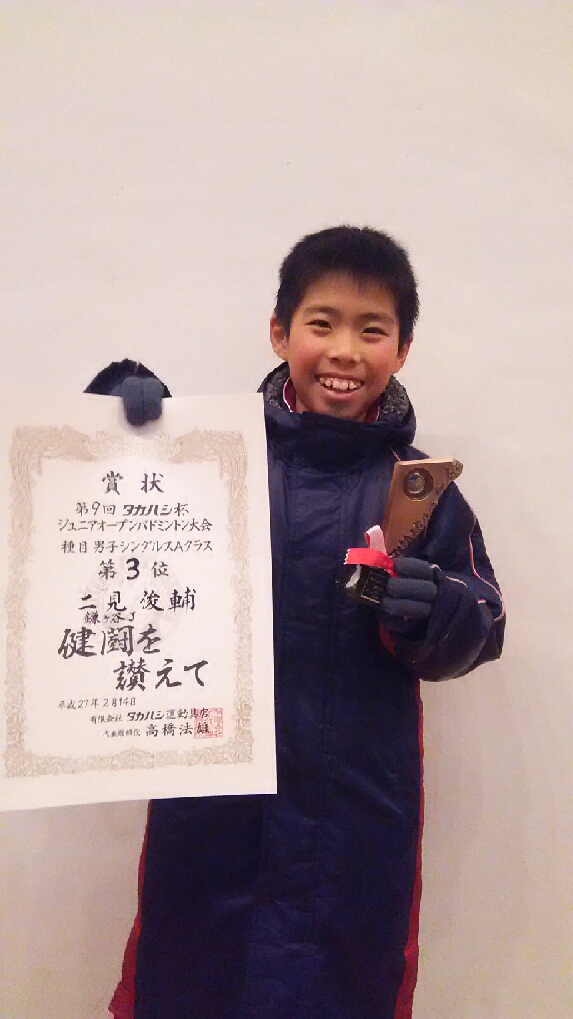 賞状
第9回 タカハシ杯
ジュニアオープンバドミントン大会
種目 男子シングルスAクラス
第3位
二見 俊輔
鎌ヶ谷J
健闘を
讃えて
平成27年2月14日
有限会社 タカハシ運動具店
代表取締役 高橋法雄